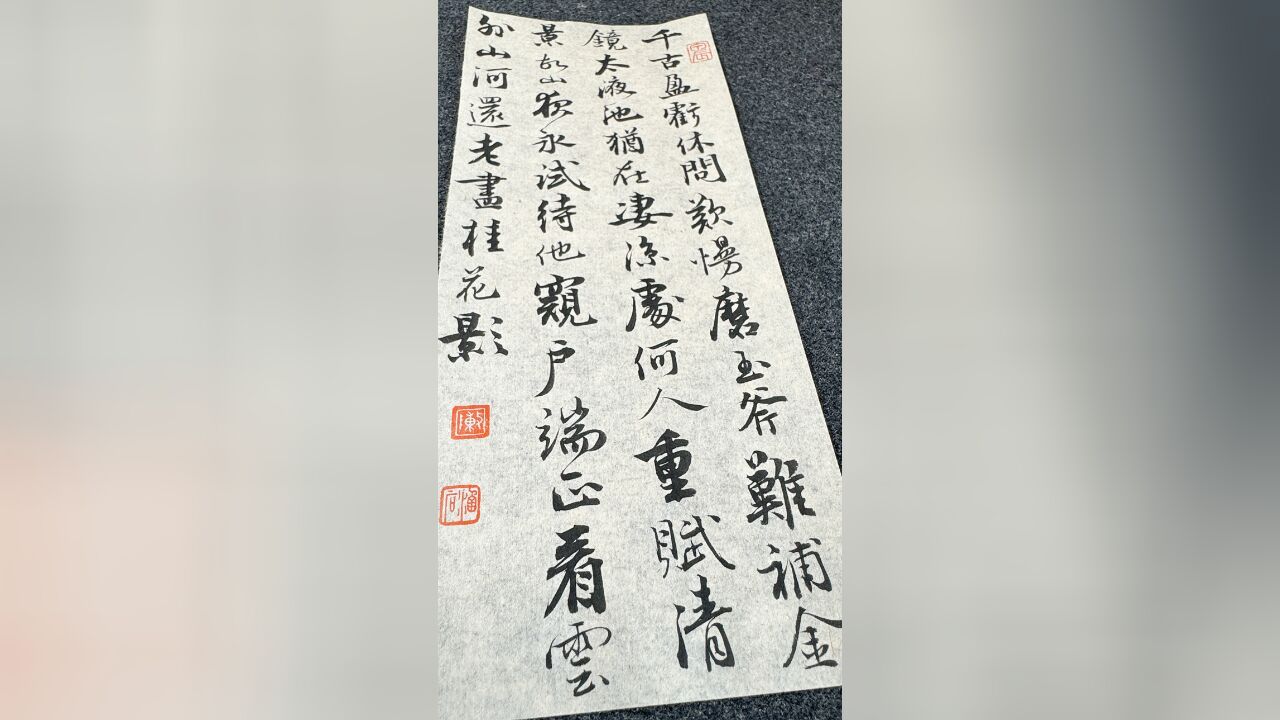 千古盈虧休問歎慢磨玉斧難補金
鏡太液池猶在淒涼處何人重賦清
景故山夜永試待他窺戶端正看雲
外山河還老畫桂花影